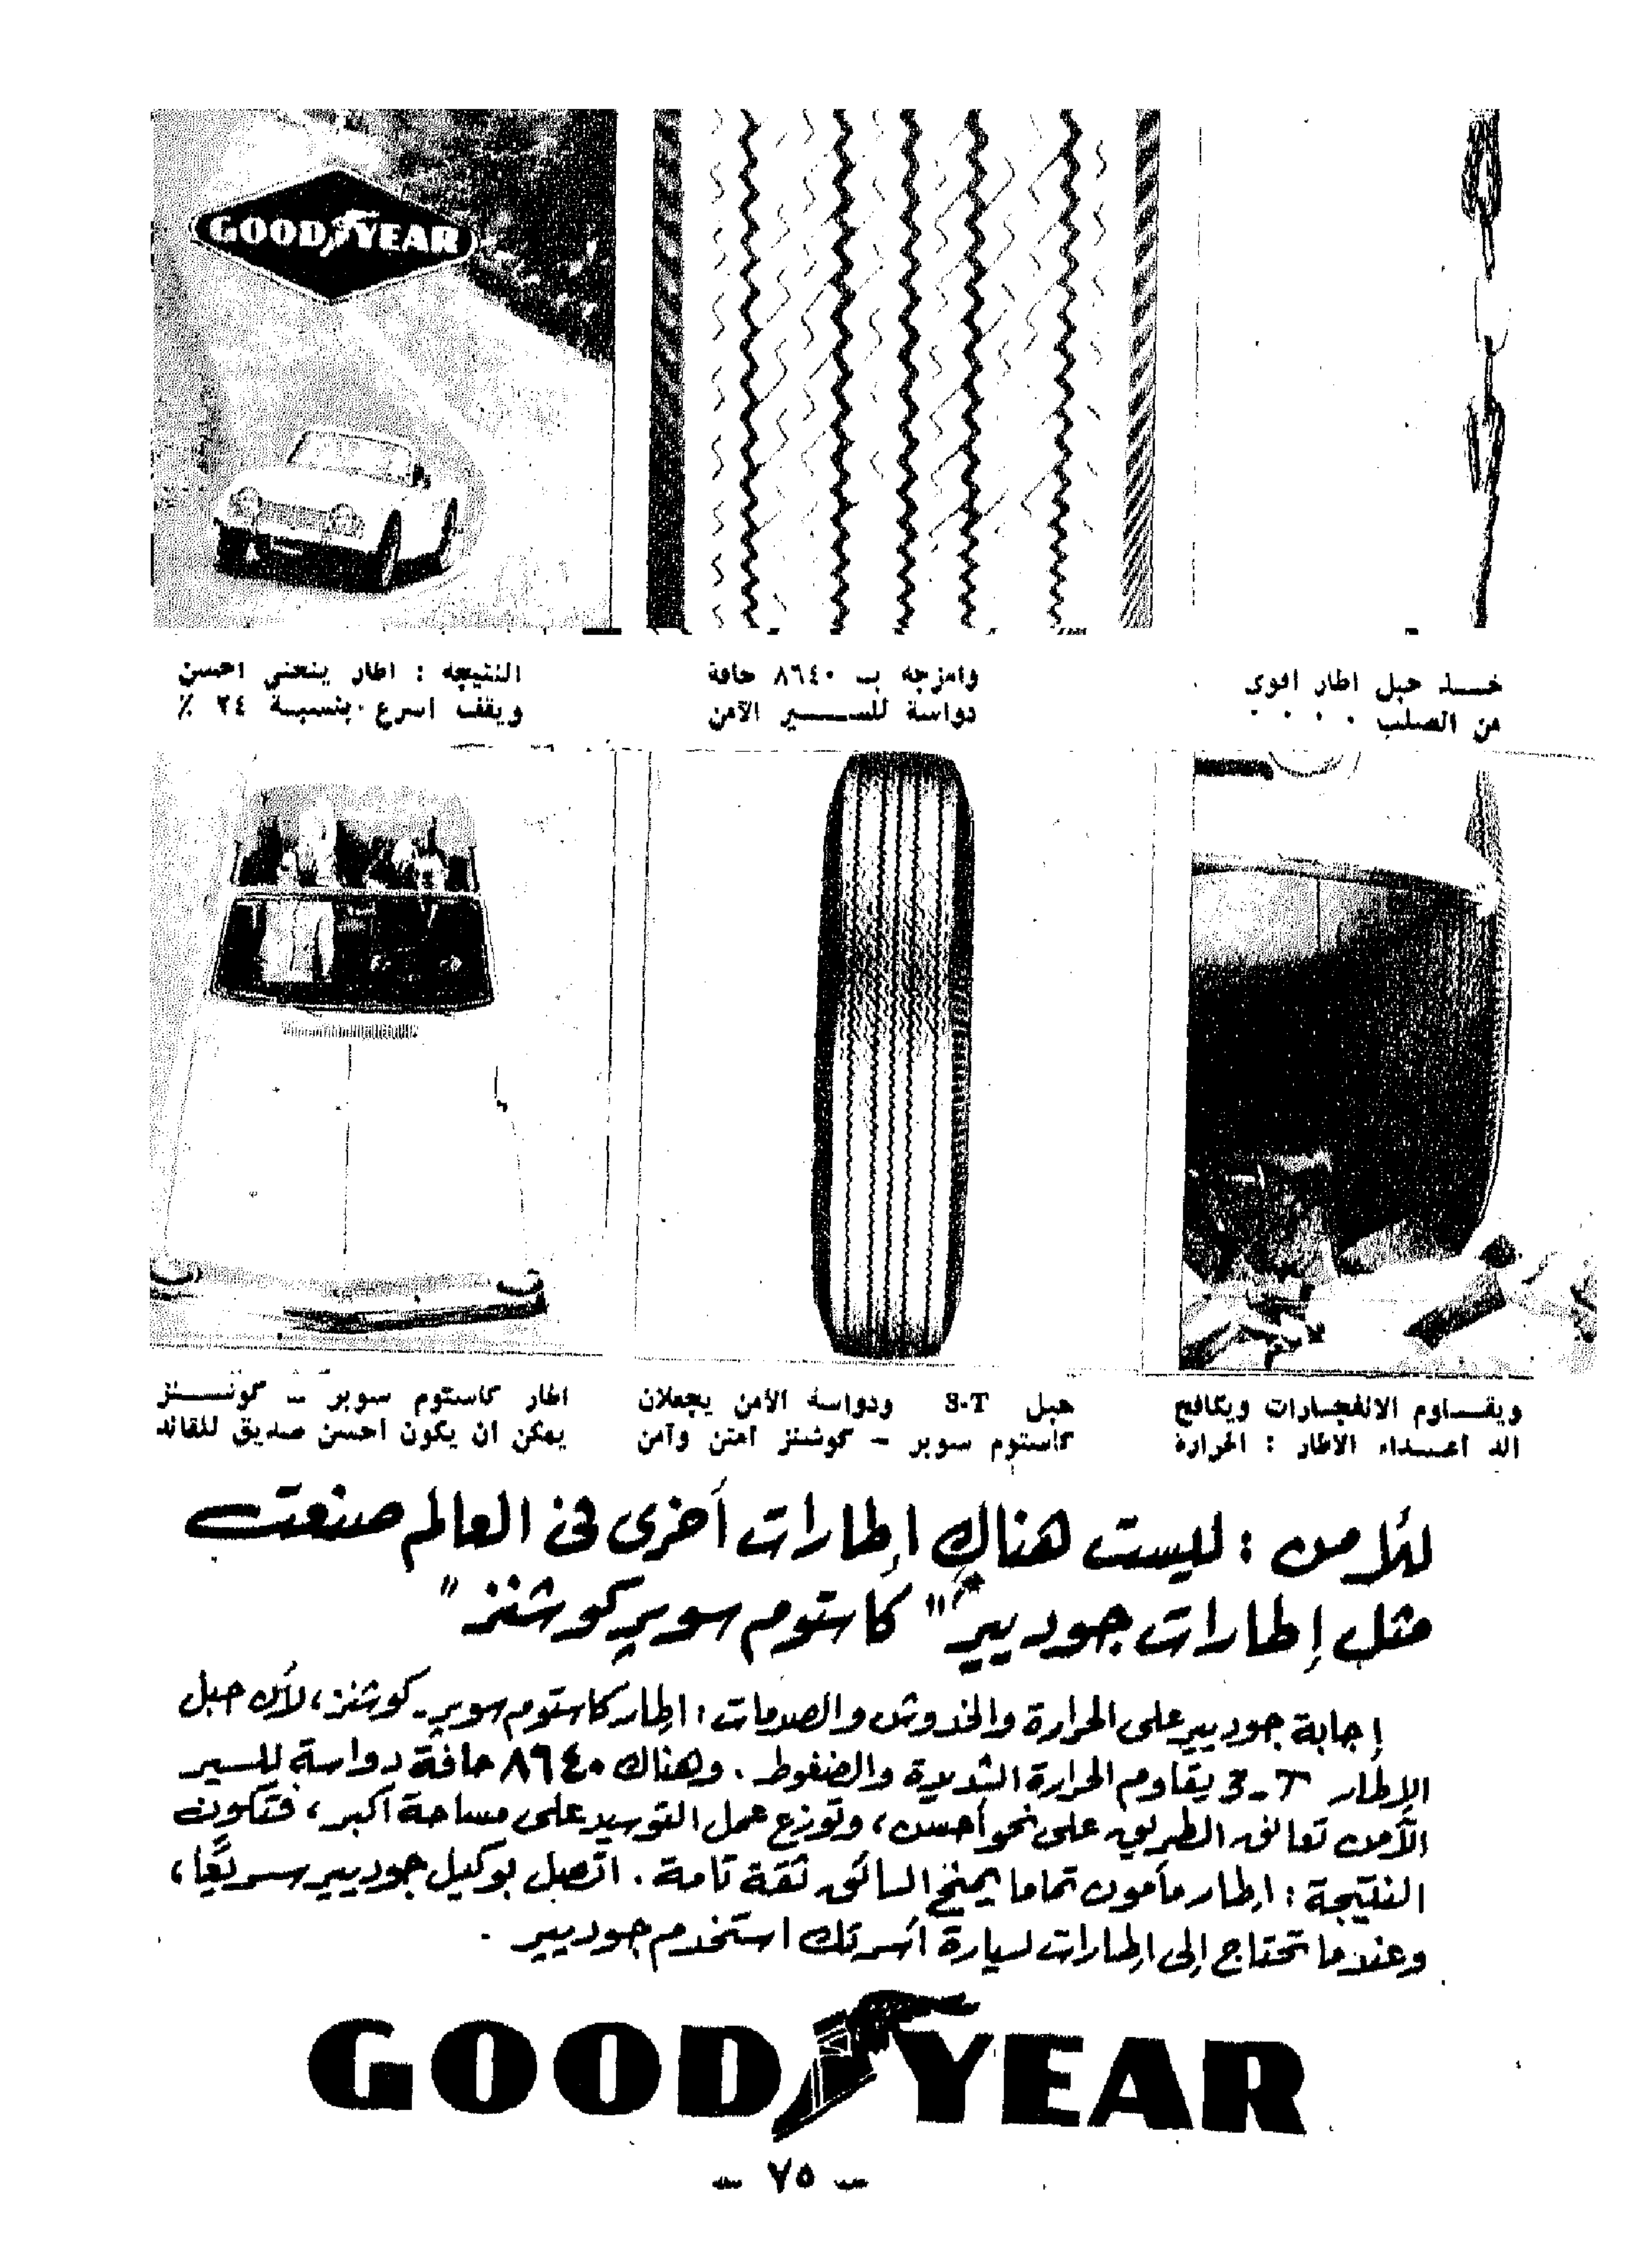 GOODYEAR
خـــذ حبل اطار اقوى
من الصلب . . . .
وامزجه بـ ٨٦٤٠ حافة
دواسة للســـــير الآمن
النتيجه : اطار ينحني احسن
ويقف اسرع بنسبـة ٢٤ ٪
ويقـــاوم الانفجـارات ويكافح
الد اعـــداء الاطار : الحرارة
حبل S-T ودواسة الأمن يجعلان
كاستوم سوبر – كوشنز امتن وآمن
اطار كاستوم سوبر – كوشـــنز
يمكن ان يكون احسن صديق للقائد
للأمن : ليست هناك إطارات أخرى في العالم صنعت
مثل إطارات جوديير "كاستوم سوبر كوشنز"
إجابة جوديير على الحرارة والخدوش والصدمات : اطار كاستوم سوبر - كوشنز، لأن حبل
الإطار 3-T يقاوم الحرارة الشديدة والضغوط . وهناك ٨٦٤٠ حافة دواسة للسير
الآمن تعانق الطريق على نحو أحسن ، وتوزع عمل التوسيد على مساحة أكبر ، فتكون
النتيجة : إطار مأمون تماما يمنح السائق ثقة تامة . اتصل بوكيل جوديير سريعًا ،
وعندما تحتاج إلى اطارات لسيارة أسرتك استخدم جوديير .
GOODYEAR
– ٧٥ –